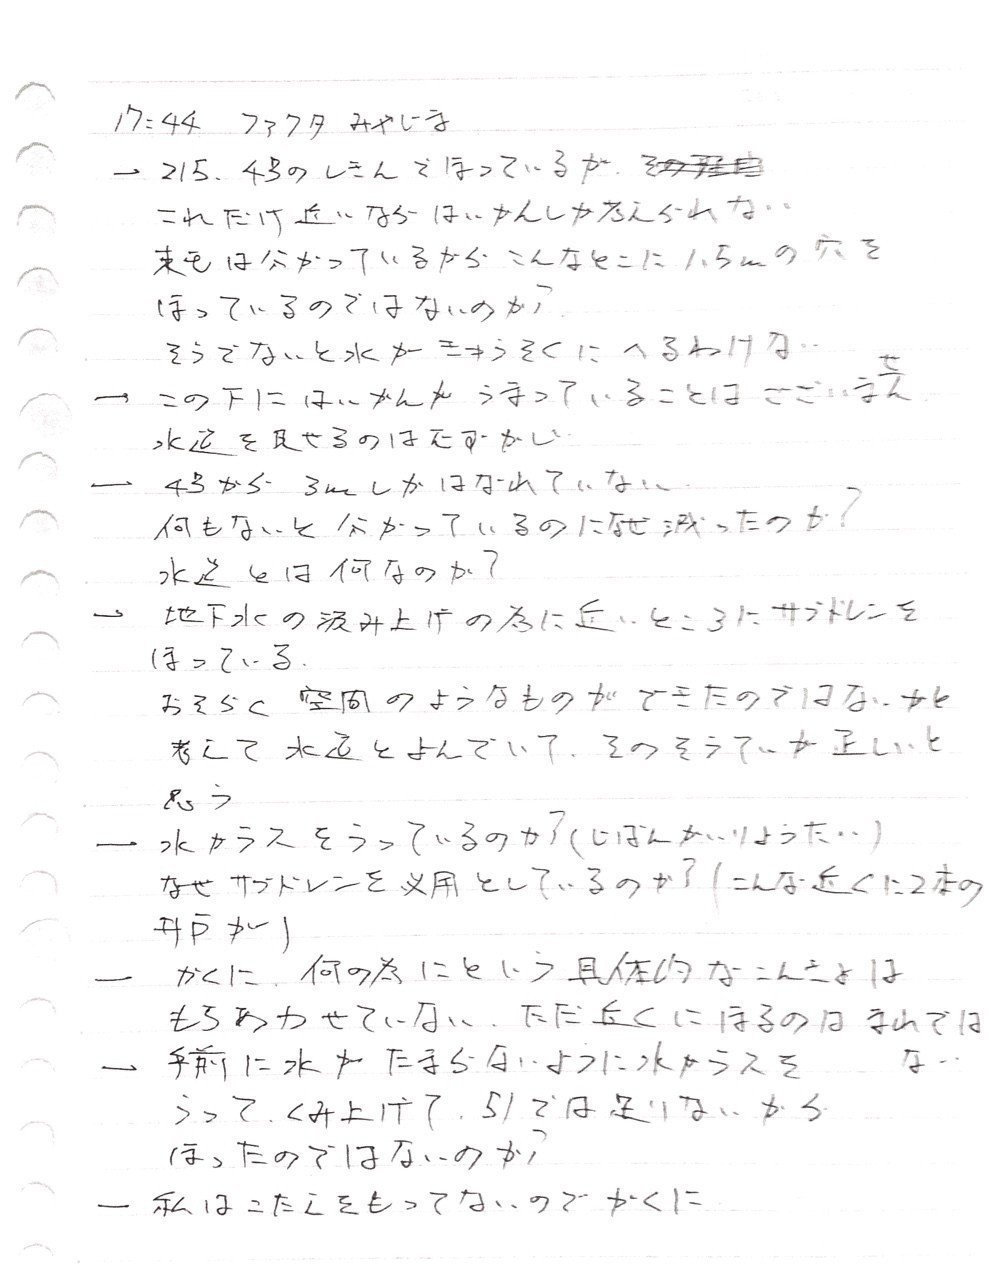 17:44 ファクタ みやじま
→ 215. 4号のしきんでほっているが.
これだけ近いならはいかんしか考えられない
東電は分かっているからこんなとこに1.5mの穴を
ほっているのではないのか?
そうでないと水が きゅうそくにへるわけない
→ この下にはいかんがうまっていることはございません
水道を見せるのはむずかしい
→ 4号から 3mしかはなれていない
何もないと分かっているのになぜ減ったのか?
水道とは何なのか?
→ 地下水の汲み上げの為に近いところにサブドレンを
ほっている.
おそらく 空間のようなものができたのではないかと
考えて水道とよんでいて. そのそうていが正しいと
思う
→ 水ガラスをうっているのか?(じばんかいりょうた‥)
なぜサブドレンを必用としているのか?(こんな近くに2本の
井戸が)
→ かくに. 何の為にという具体的なこんきょは
もちあわせていない. ただ近くにほるのはまれでは
ない
→ 手前に水がたまらないように水ガラスを
うって. くみ上げて. 51では足りないから
ほったのではないのか?
→ 私はこたえをもってないのでかくに